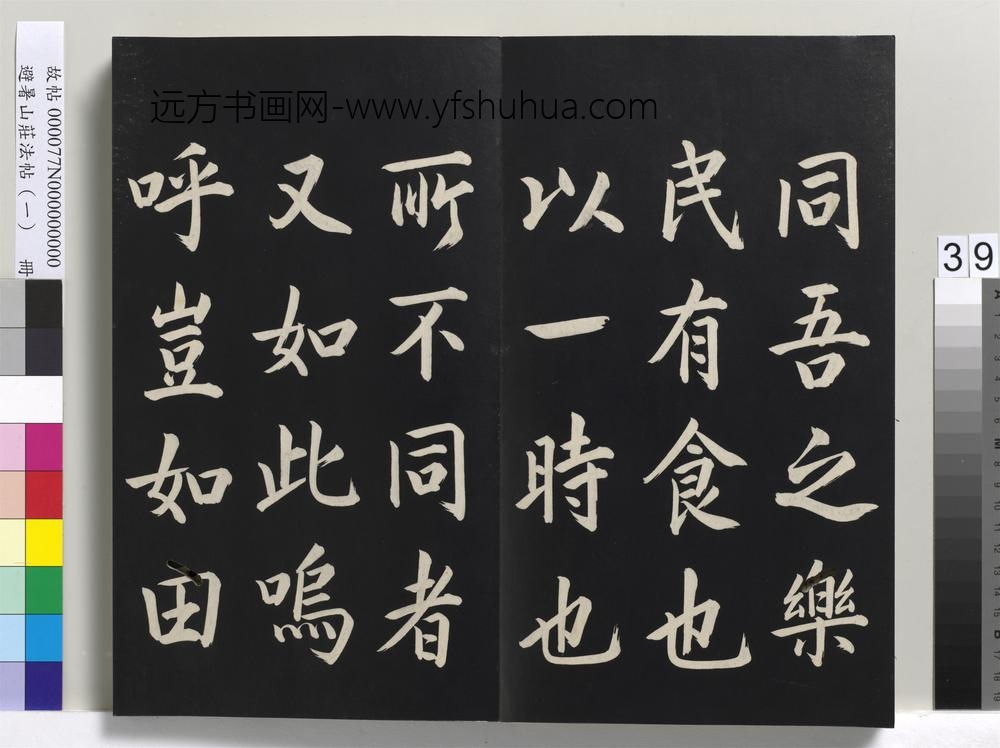 远方书画网-www.yfshuhua.com
同吾之樂
民有食也
以一時也
所不同者
又如此嗚
呼豈如田
故帖 000077N000000000
避暑山莊法帖（一） 冊
39